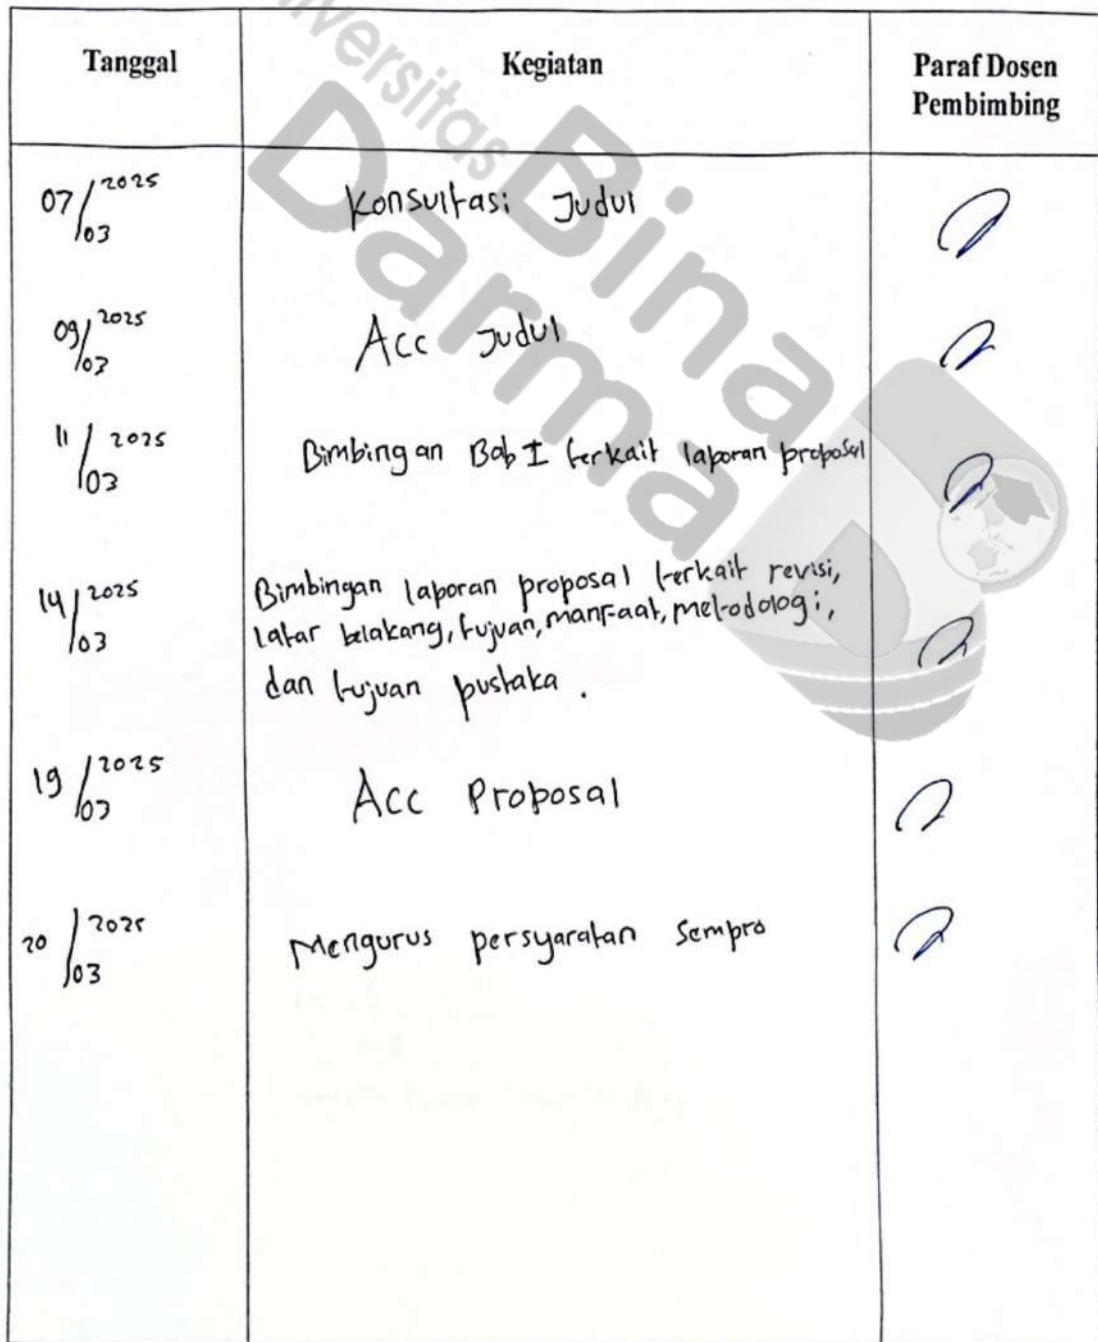 Universitas
Bina
Darma
Tanggal Kegiatan Paraf Dosen
Pembimbing
07/03 2025 Konsultasi Judul
09/03 2025 Acc Judul
11/03 2025 Bimbingan Bab I terkait laporan proposal
14/03 2025 Bimbingan laporan proposal terkait revisi,
latar belakang, tujuan, manfaat, metodologi,
dan tujuan pustaka .
19/03 2025 Acc Proposal
20/03 2025 Mengurus persyaratan Sempro